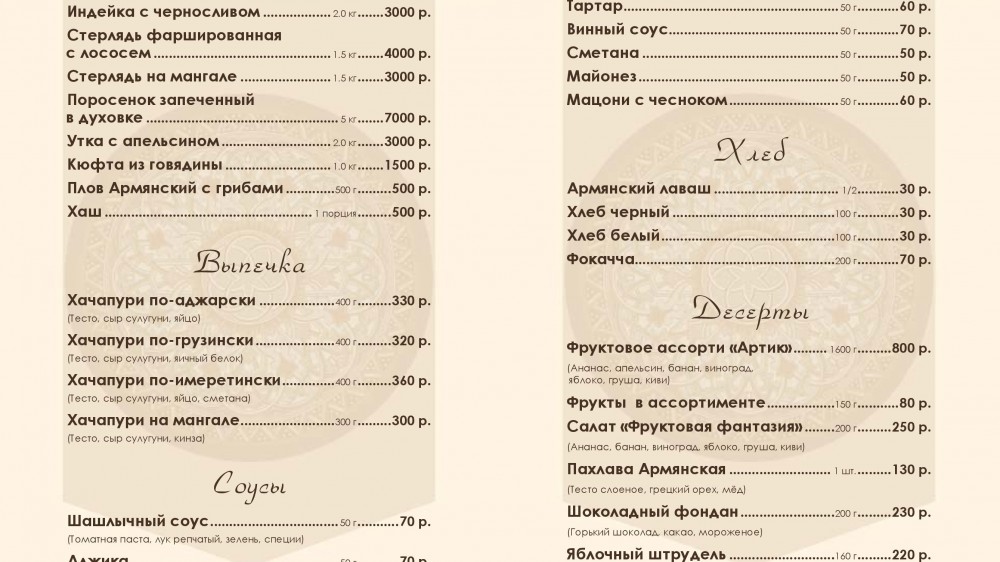 Индейка с черносливом 2.0 кг 3000 р.
Стерлядь фаршированная
с лососем 1.5 кг 4000 р.
Стерлядь на мангале 1.5 кг 3000 р.
Поросенок запеченный
в духовке 5 кг 7000 р.
Утка с апельсином 2.0 кг 3000 р.
Кюфта из говядины 1.0 кг 1500 р.
Плов Армянский с грибами 500 г 500 р.
Хаш 1 порция 500 р.
Выпечка
Хачапури по-аджарски 400 г 330 р.
(Тесто, сыр сулугуни, яйцо)
Хачапури по-грузински 400 г 320 р.
(Тесто, сыр сулугуни, яичный белок)
Хачапури по-имеретински 400 г 360 р.
(Тесто, сыр сулугуни, яйцо, сметана)
Хачапури на мангале 300 г 300 р.
(Тесто, сыр сулугуни, кинза)
Соусы
Шашлычный соус 50 г 70 р.
(Томатная паста, лук репчатый, зелень, специи)
Аджика 50 г 70 р.
Тартар 50 г 60 р.
Винный соус 50 г 70 р.
Сметана 50 г 50 р.
Майонез 50 г 50 р.
Мацони с чесноком 50 г 60 р.
Хлеб
Армянский лаваш 1/2 30 р.
Хлеб черный 100 г 30 р.
Хлеб белый 100 г 30 р.
Фокачча 200 г 70 р.
Десерты
Фруктовое ассорти «Артик» 1600 г 800 р.
(Ананас, апельсин, банан, виноград,
яблоко, груша, киви)
Фрукты в ассортименте 150 г 80 р.
Салат «Фруктовая фантазия» 200 г 250 р.
(Ананас, банан, виноград, яблоко, груша, киви)
Пахлава Армянская 1 шт. 130 р.
(Тесто слоеное, грецкий орех, мёд)
Шоколадный фондан 200 г 230 р.
(Горький шоколад, какао, мороженое)
Яблочный штрудель 160 г 220 р.